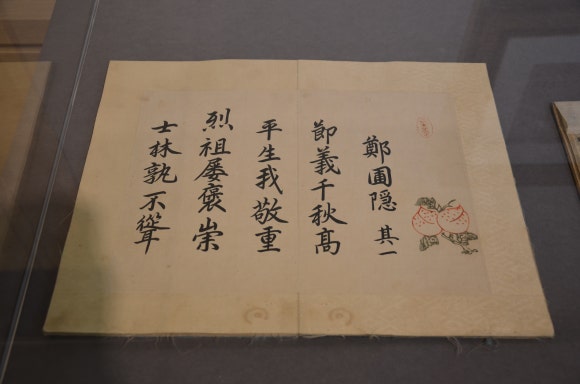 鄭圃隱 其一
節義千秋高
平生我敬重
烈祖屡褒崇
士林孰不聳